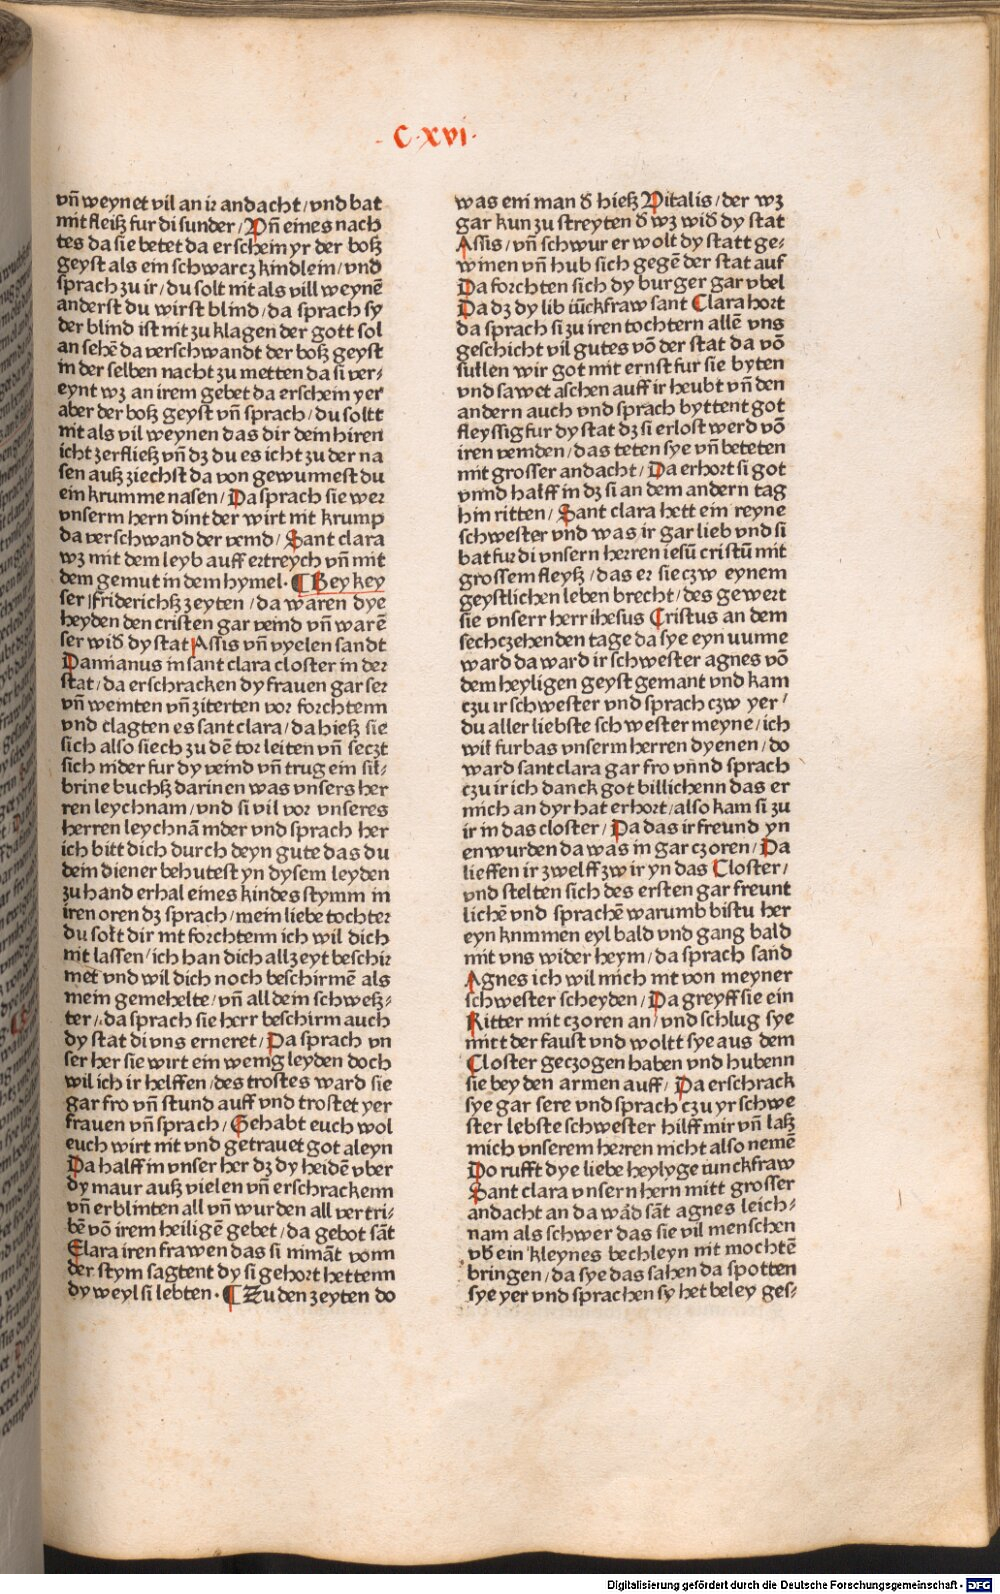 C·xvi·
vñ weynet vil an ir andacht/vnd bat
mit fleiß fur di sunder/Vñ eines nach
tes da sie betet da erschein yr der boß
geyst als ein schwarcz kindlein/vnd
sprach zu ir/du solt nit als vill weynē
anderst du wirst blind/da sprach sy
der blind ist nit zu klagen der gott sol
an sehē da verschwandt der boß geyst
in der selben nacht zu metten da si ver⸗
eynt wz an irem gebet da erschein yer
aber der boß geyst vñ sprach/du soltt
nit als vil weynen das dir dein hiren
icht zerfließ vñ dz du es icht zu der na
sen auß ziechst da von gewumest du
ein krumme nasen/Da sprach sie wer
vnserm hern dint der wirt nit krump
da verschwand der veind/Sant clara
wz mit dem leyb auff ertreych vñ mit
dem gemut in dem hymel·¶Bey key
ser friderichß zeyten/da waren dye
heyden den cristen gar veind vñ warē
ser wid̄ dy stat Assis vñ vyelen sandt
Damianus in sant clara closter in der
stat/da erschracken dy frauen gar ser
vñ weinten vñ ziterten vor forchtenn
vnd clagten es sant clara/da hieß sie
sich also siech zu dē tor leiten vñ seczt
sich nider fur dy veind vñ trug ein sil⸗
brine buchß darinen was vnsers her
ren leychnam/vnd si vil vor vnseres
herren leychnā nider vnd sprach her
ich bitt dich durch deyn gute das du
dein diener behutest yn dysem leyden
zu hand erhal eines kindes stymm in
iren oren dz sprach/mein liebe tochter
du solt dir nit forchtenn ich wil dich
nit lassen/ich han dich allzeyt beschir
met vnd wil dich noch beschirmē als
mein gemehelte/vñ all dein schweß⸗
ter/da sprach sie herr beschirm auch
dy stat di vns erneret/Da sprach vn
ser her sie wirt ein wenig leyden doch
wil ich ir helffen/des trostes ward sie
gar fro vñ stund auff vnd trostet yer
frauen vñ sprach/Gehabt euch wol
euch wirt nit vnd getrauet got aleyn
Da halff in vnser her dz dy heidē vber
dy maur auß vielen vñ erschrackenn
vñ erblinten all vñ wurden all vertri⸗
bē vō irem heiligē gebet/da gebot sāt
Clara iren frawen das si nimāt vonn
der stym sagtent dy si gehort hettenn
dy weyl si lebten·¶Zu den zeyten do
was ein man d̄ hieß Vitalis/der wz
gar kun zu streyten d̄ wz wid̄ dy stat
Assis/vñ schwur er wolt dy statt ge⸗
winen vñ hub sich gegē der stat auf
Da forchten sich dy burger gar vbel
Da dz dy lib iūckfraw sant Clara hort
da sprach si zu iren tochtern allē vns
geschicht vil gutes vō der stat da vō
sullen wir got mit ernst fur sie byten
vnd sawet aschen auff ir heubt vñ den
andern auch vnd sprach byttent got
fleyssig fur dy stat dz si erlost werd vō
iren veinden/das teten sye vñ beteten
mit grosser andacht/Da erhort si got
vnnd halff in dz si an dem andern tag
hin ritten/Sant clara hett ein reyne
schwester vnd was ir gar lieb vnd si
bat fur di vnsern herren iesū cristū mit
grossem fleyß/das er sie czw eynem
geystlichen leben brecht/des gewert
sie vnserr herr ihesus Cristus an dem
sechczehenden tage da sye eyn uunne
ward da ward ir schwester agnes vō
dem heyligen geyst gemant vnd kam
czu ir schwester vnd sprach czw yer/
du aller liebste schwester meyne/ich
wil furbas vnserm herren dyenen/do
ward sant clara gar fro vñnd sprach
czu ir ich danck got billichenn das er
mich an dyr hat erhort/also kam si zu
ir in das closter/Da das ir freund yn
en wurden da was in gar czoren/Da
lieffen ir zwelff zw ir yn das Closter/
vnd stelten sich des ersten gar freunt
lichē vnd sprachē warumb bistu her
eyn knmmen eyl bald vnd gang bald
mit vns wider heym/da sprach sand
Agnes ich wil mich nit von meyner
schwester scheyden/Da greyff sie ein
Ritter mit czoren an/vnd schlug sye
mitt der faust vnd woltt sye aus dem
Closter geczogen haben vnd hubenn
sie bey den armen auff/Da erschrack
sye gar sere vnd sprach czu yr schwe
ster lebste schwester hilff mir vñ laß
mich vnserem herren nicht also nemē
Do rufft dye liebe heylyge iunckfraw
Sant clara vnsern hern mitt grosser
andacht an da wād sāt agnes leich⸗
nam als schwer das sie vil menschen
vb̄ ein kleynes bechleyn nit mochtē
bringen/da sye das sahen da spotten
sye yer vnd sprachen sy het beley ges⸗
Digitalisierung gefördert durch die Deutsche Forschungsgemeinschaft - DFG